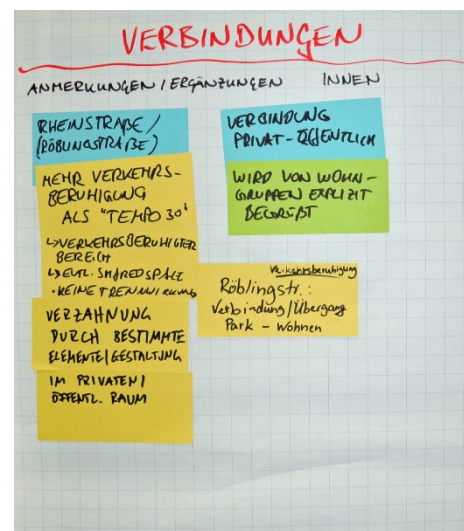 VERBINDUNGEN
ANMERKUNGEN / ERGÄNZUNGEN INNEN
RHEINSTRAßE /
(RÖBLINGSTRAßE)
MEHR VERKEHRS-
BERUHIGUNG
ALS "TEMPO 30"
↳ VERKEHRSBERUHIGTER
BEREICH
↳ EVTL. SHARED SPACE
· KEINE TRENNWIRKUNG
VERZAHNUNG
DURCH BESTIMMTE
ELEMENTE / GESTALTUNG
IM PRIVATEN /
ÖFFENTL. RAUM
VERBINDUNG
PRIVAT - ÖFFENTLICH
WIRD VON WOHN-
GRUPPEN EXPLIZIT
BEGRÜßT
Verkehrsberuhigung
Röblingstr.:
Verbindung / Übergang
Park - Wohnen